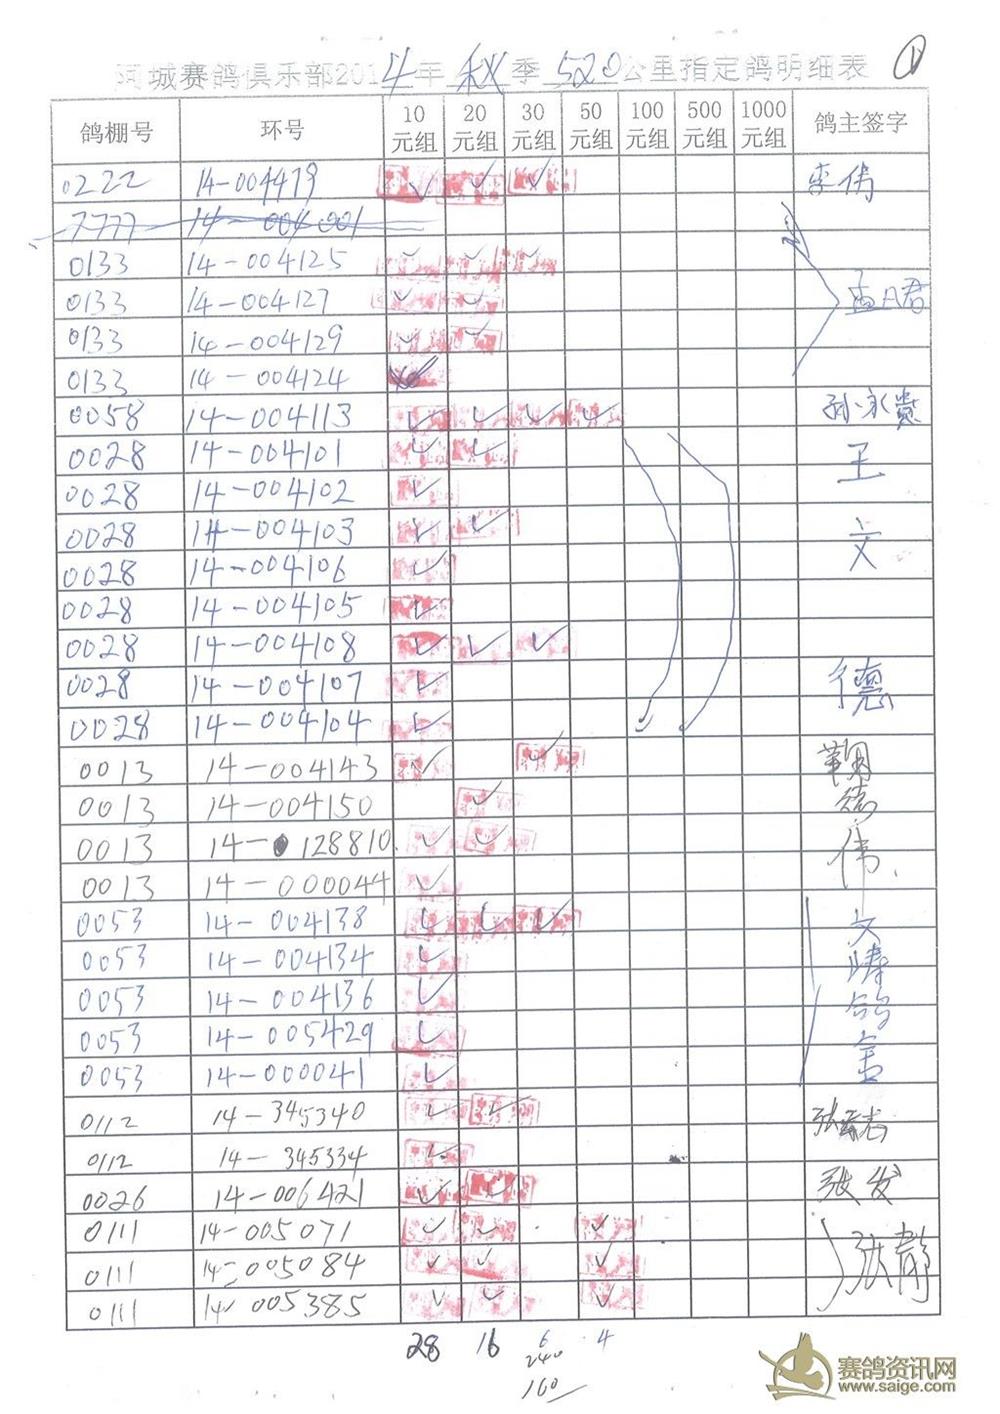 阿城赛鸽俱乐部2014年秋季520公里指定鸽明细表 ①
鸽棚号 环号 10元组 20元组 30元组 50元组 100元组 500元组 1000元组 鸽主签字
0222 14-004479 ✓ ✓ ✓ 李伟
7777 14-004001
0133 14-004125 ✓ ✓ ✓
0133 14-004127 ✓ ✓ 孟凡君
0133 14-004129 ✓ ✓
0133 14-004124
0058 14-004113 ✓ ✓ ✓ ✓ 孙永贵
0028 14-004101 ✓ ✓ 王
0028 14-004102 ✓
0028 14-004103 ✓ ✓ 文
0028 14-004106 ✓
0028 14-004105 ✓
0028 14-004108 ✓ ✓ ✓
0028 14-004107 ✓ 德
0028 14-004104 ✓
0013 14-004143 ✓ ✓
0013 14-004150 ✓
0013 14-128810 ✓ ✓ 伟
0013 14-000044 ✓
0053 14-004138 ✓ ✓ ✓ 文
0053 14-004134 ✓
0053 14-004136 ✓ 鸽
0053 14-005429 ✓ 舍
0053 14-000041 ✓
0112 14-345340 ✓ ✓
0112 14-345334 ✓
0026 14-006421 ✓ ✓ 张发
0111 14-005071 ✓ ✓ ✓
0111 14-005084 ✓ ✓ ✓ 张静
0111 14-005385 ✓ ✓ ✓
28 16 6 4
240
160
赛鸽资讯网
www.saige.com